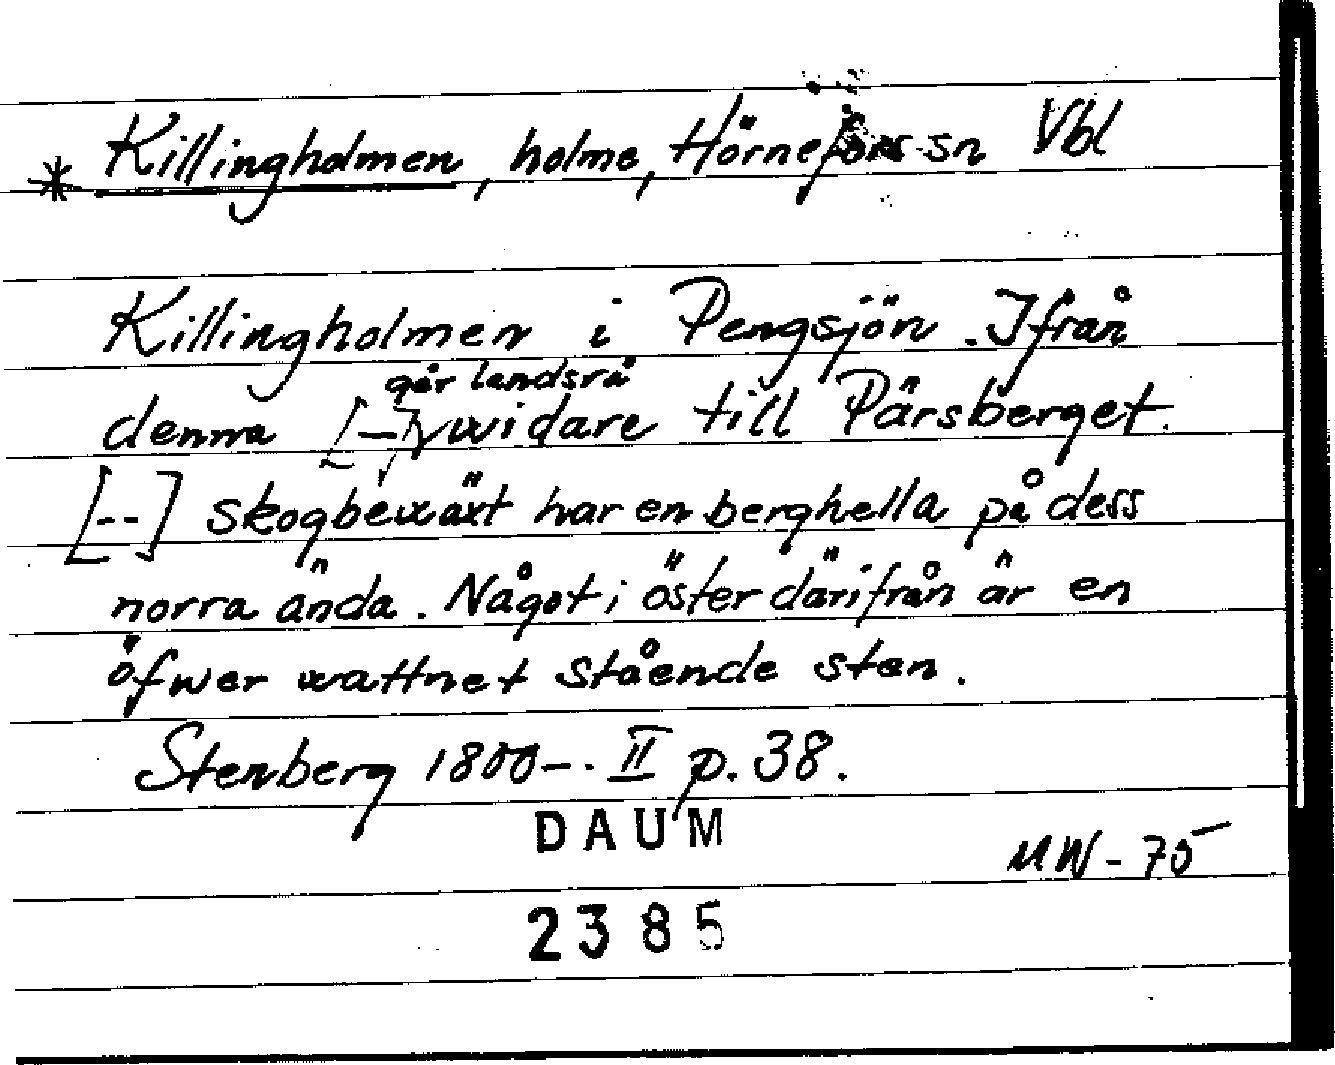 * Killingholmen, holme, Hörnefors sn Vbl
Killingholmen i Pengsjön. Ifrån
går landsrå
denna [-] widare till Pärsberget.
[--] skogbewäxt har en berghella på dess
norra ända. Något i öster därifrån är en
öfwer wattnet stående sten.
Stenberg 1800-. II p. 38.
DAUM
MW-75
2385